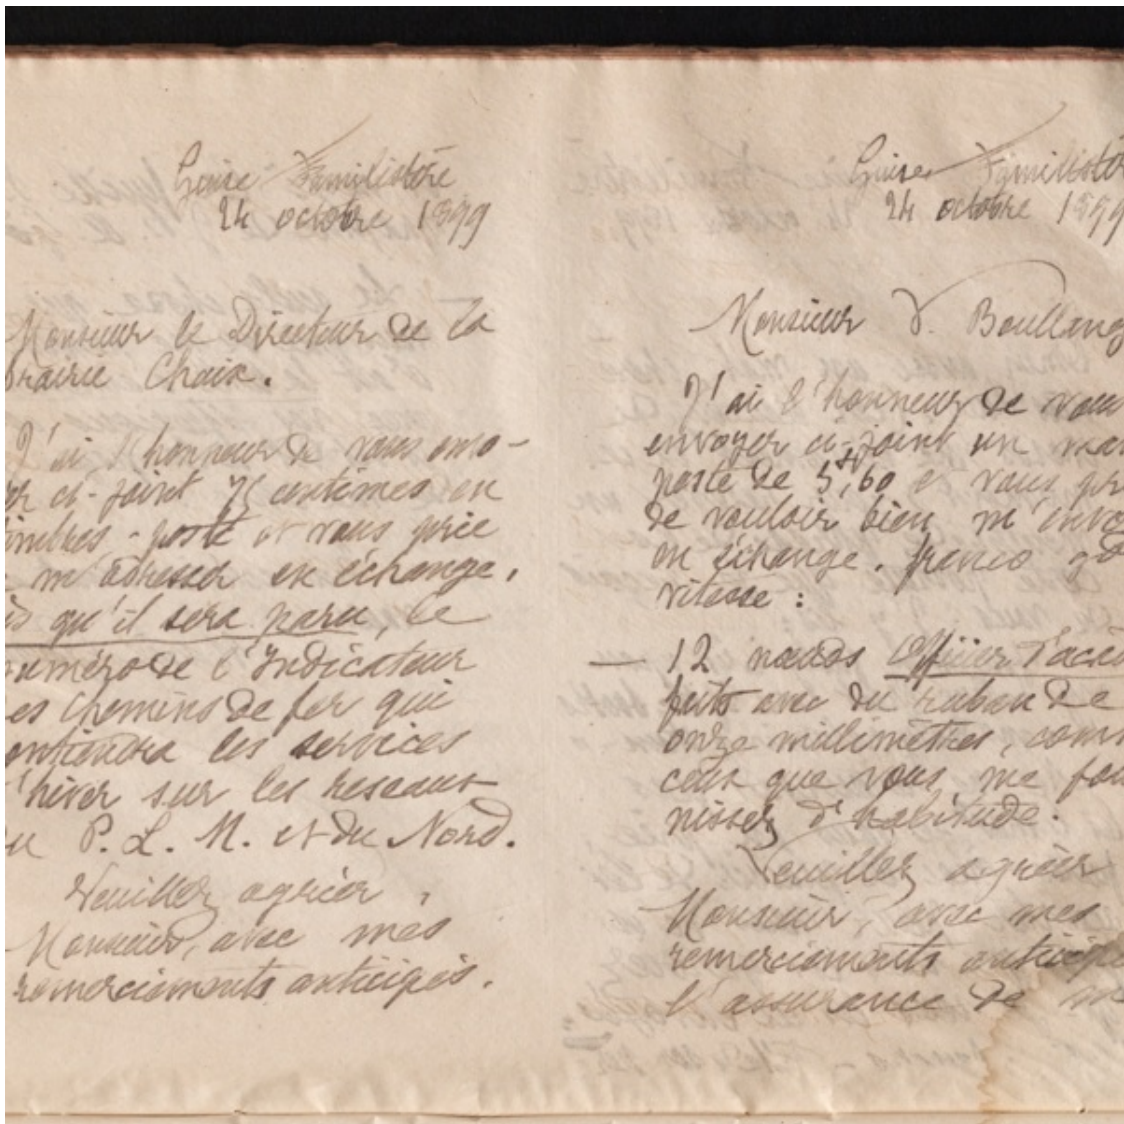 Guise Familistère
24 octobre 1899
Monsieur le Directeur de la
brairie Chaix.
J'ai l'honneur de vous envo-
er ci-joint 75 centimes en
imbres-poste et vous prie
m'adresser en échange,
ès qu'il sera paru, le
numéro de l'Indicateur
es Chemins de fer qui
ontiendra les services
d'hiver sur les réseaux
du P. L. M. et du Nord.
Veuillez agréer,
Monsieur, avec mes
remerciements anticipés.
Guise Familistèr
24 octobre 1899
Monsieur V. Boullang
J'ai l'honneur de vous
envoyer ci-joint un man
poste de 5fr,60 et vous pr
de vouloir bien m'envo
en échange, franco gde
vitesse :
— 12 nœuds Officier d'acad
faits avec du ruban de
onze millimètres, comm
ceux que vous me four
nissez d'habitude.
Veuillez agréer
Monsieur, avec mes
remerciements anticipé
l'assurance de m